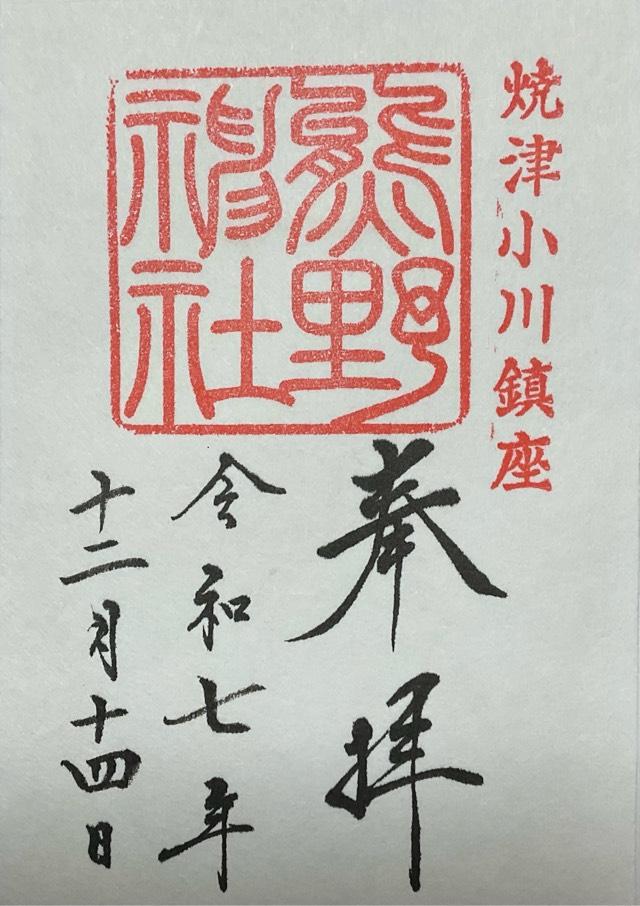 焼津小川鎮座
熊野神社
奉拝
令和七年
十二月十四日